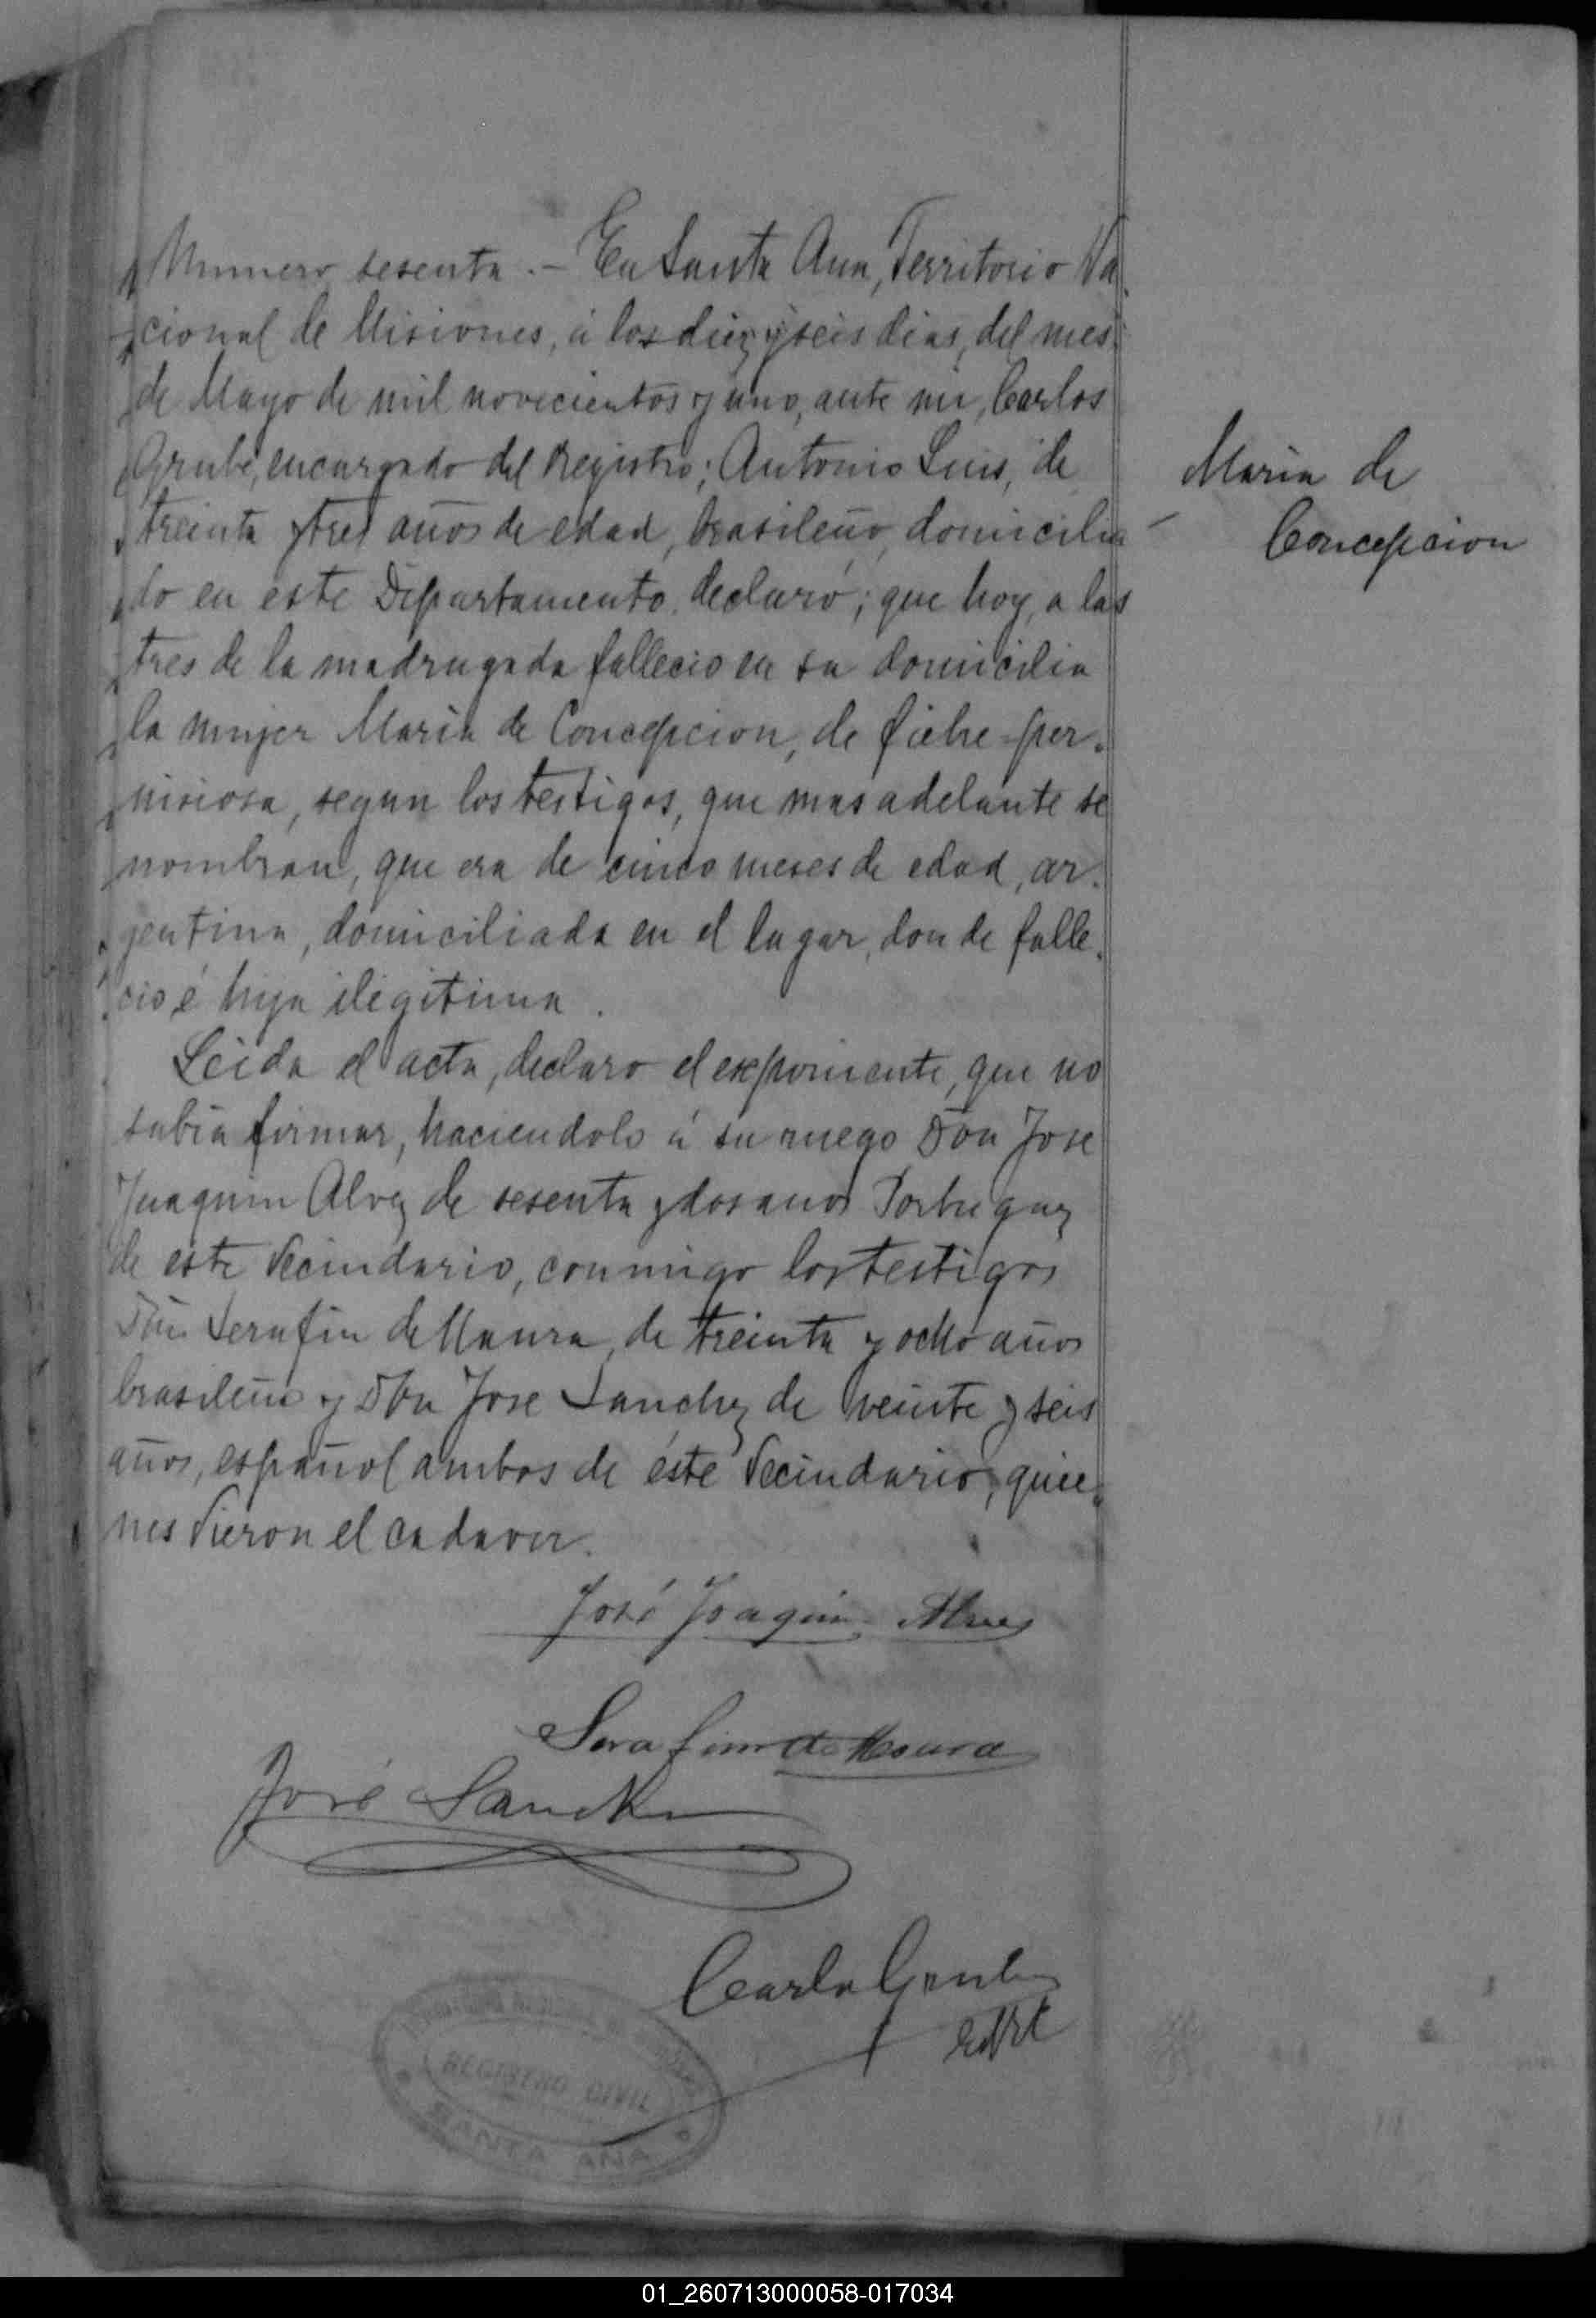 Numero sesenta.- En Santa Ana, Territorio Na-
cional de Misiones, á los diez y seis dias, del mes
de Mayo de mil novecientos y uno, ante mi, Carlos
Grube, encargado del Registro; Antonio Luis, de
treinta y tres años de edad, brasileño, domicilia
do en este Departamento, declaró; que hoy, a las
tres de la madrugada fallecio en su domicilio
la mujer Maria de Concepcion, de fiebre per-
niciosa, segun los testigos, que mas adelante se
nombran, que era de cinco meses de edad, ar-
gentina, domiciliada en el lugar, donde falle-
cio é hija ilegitima.
Leida el acta, declaro el exponiente, que no
sabia firmar, haciendolo á su ruego Don Jose
Juaquin Alvez de sesenta y dos anos Portuguez
de este Vecindario, conmigo los testigos
Don Serafin de Maura, de treinta y ocho años
brasileño y Don Jose Sanchez de veinte y seis
años, español ambos de éste Vecindario, quie-
nes vieron el cadaver.
Maria de
Concepcion
José Joaquin Alves
Serafim de Moura
José Sanchez
Carlos Grube
REGISTRO CIVIL
SANTA ANA
01_260713000058-017034